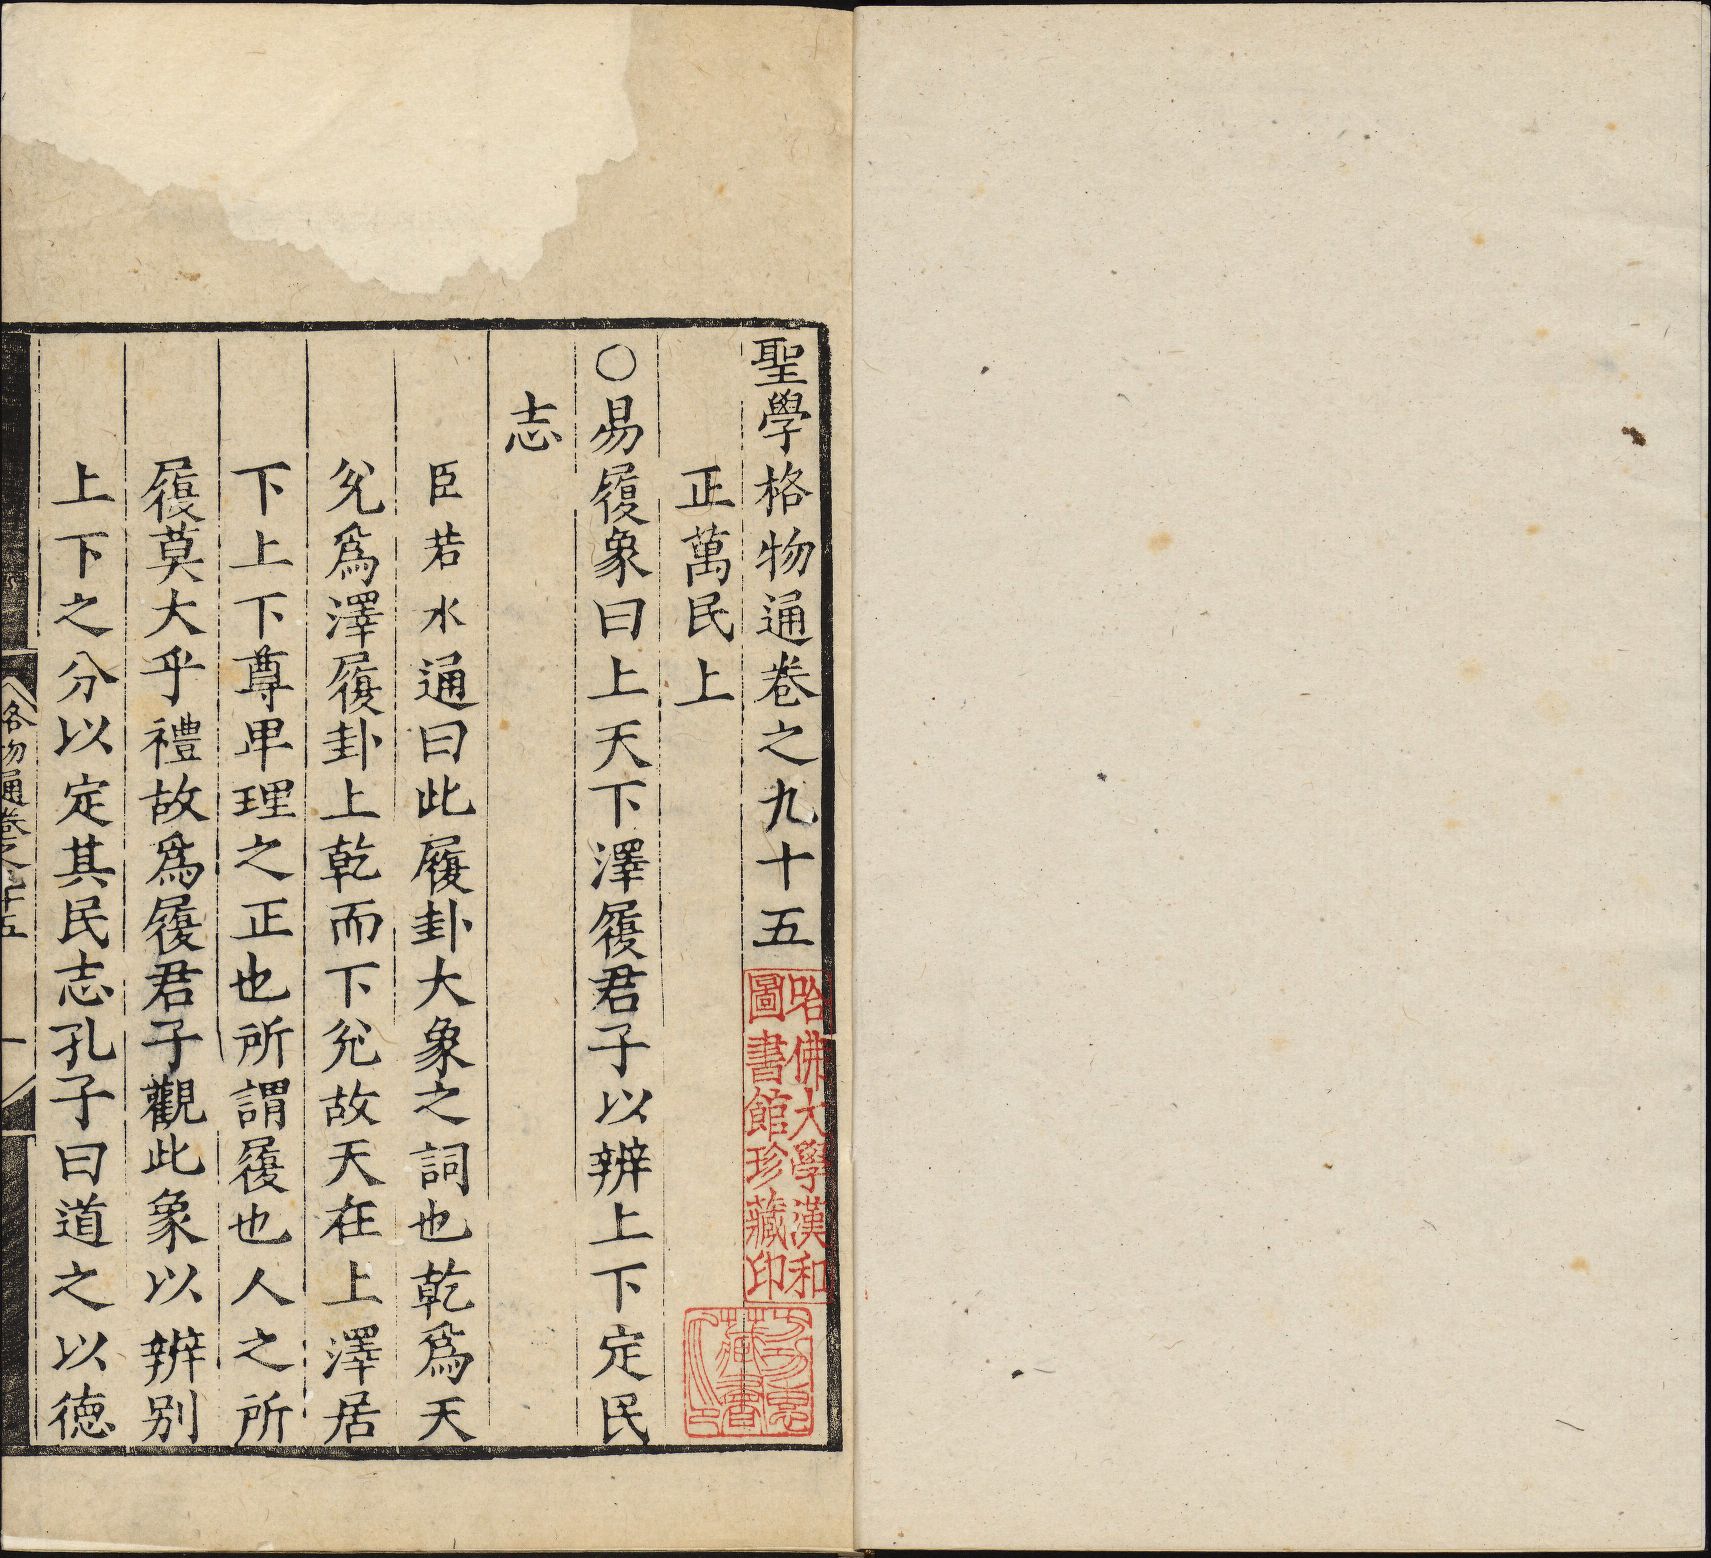 聖學格物通卷之九十五
正萬民上
○易履象曰上天下澤履君子以辨上下定民
志
臣若水通曰此履卦大象之詞也乾為天
兊為澤履卦上乾而下兊故天在上澤居
下上下尊卑理之正也所謂履也人之所
履莫大乎禮故為履君子觀此象以辨別
上下之分以定其民志孔子曰道之以德
格物通卷之九十五
一
哈佛大學漢和
圖書館珍藏印
藏書